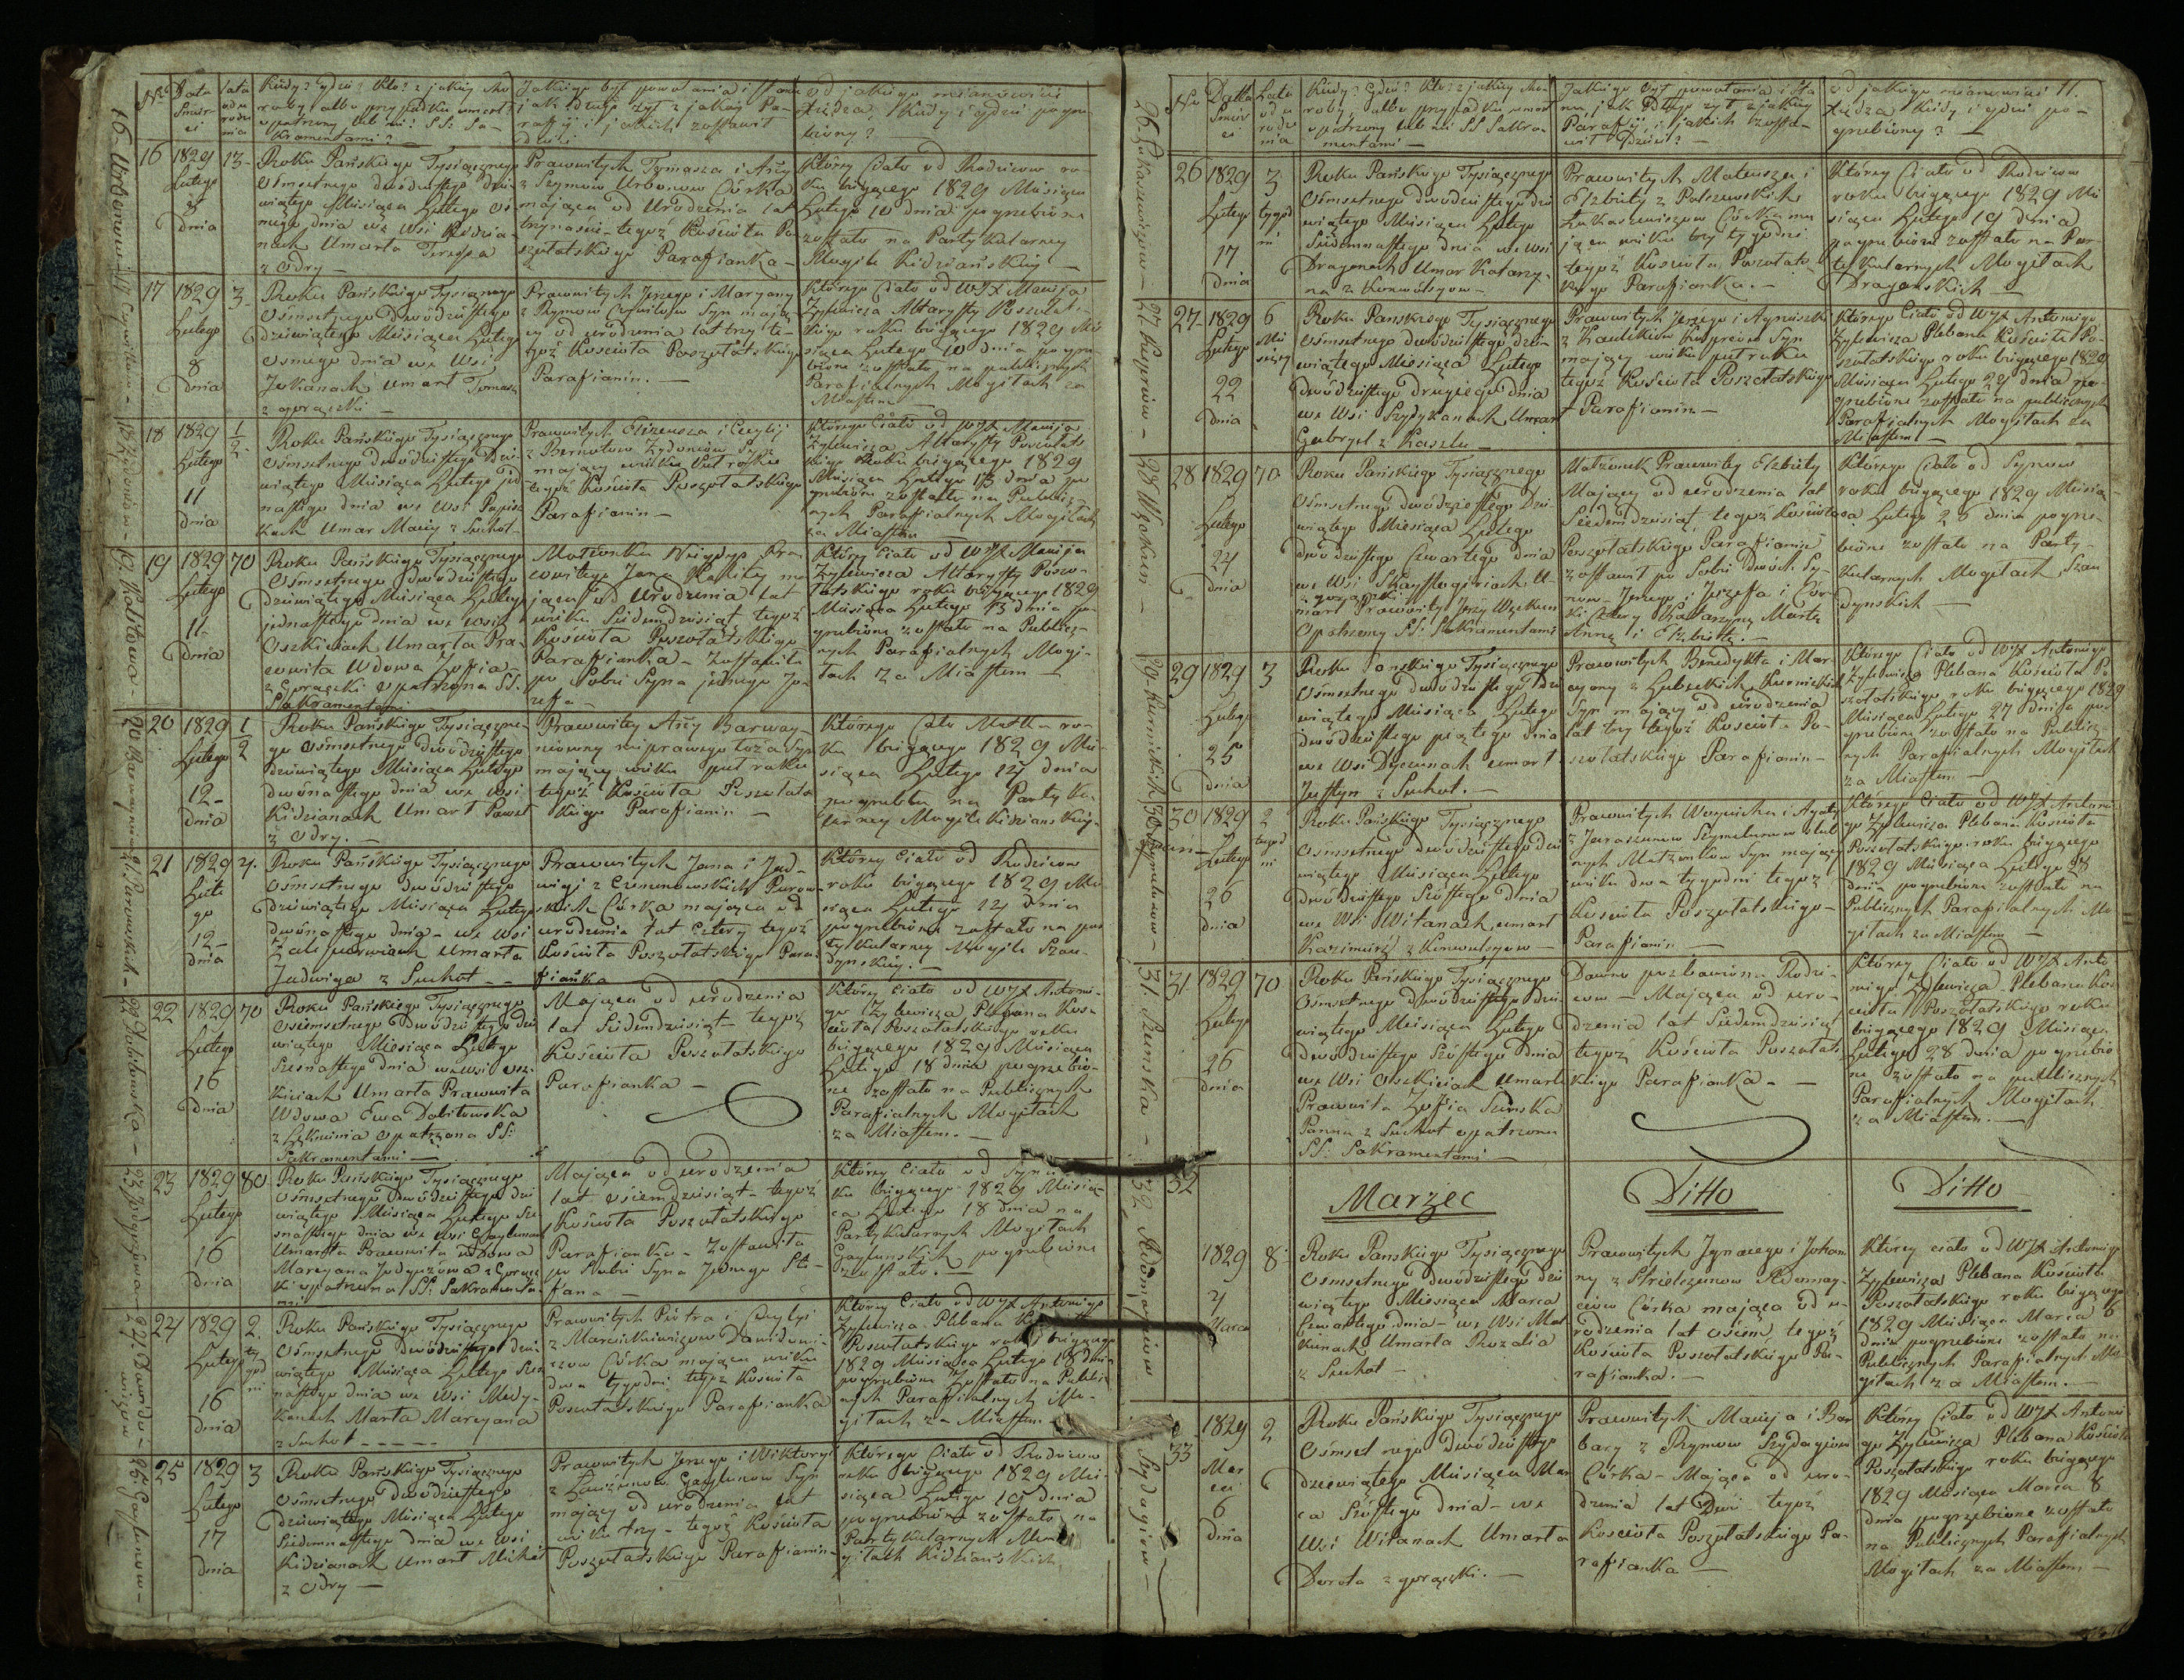 No
Data
Śmier
ci
Lata
od u
rodze
nia
Kiedy? gdzie? kto? z jakiey cho
roby albo przypadku umarł?
opatrzony lub nie? SS: Sa-
kramentami?
Jakiego był powołania i stanu
jak długo żył z jakiey Pa-
rafij i jakich zostawił
dzieci
od jakiego mianowicie
Xiędza, kiedy i gdzie pogrze
biony?
16
1829
Lutego
8
dnia
13-
Roku Pańskiego Tysiącznego
Ośmsetnego dwódziestego dzie
wiątego Miesiąca Lutego Os
mego dnia we Wsi Kidzia-
nach Umarła Teressa
z Odry -
Prawowitych Tomasza i Anny
z Szymow Urbonow Córka
mająca od Urodzenia lat
trzynaście tegoż Kościoła Po
szołatskiego Parafianka -
Którey Ciało od Rodzicow ro-
ku bieżącego 1829 Miesiąca
Lutego 10 dnia pogrzebione
zostało na Partykularney
Mogile Kidziańskiey -
17
1829
Lutego
8
dnia
3-
Roku Pańskiego Tysiącznego
Ośmsetnego dwódziestego
dziewiątego Miesiąca Lutego
Osmego dnia we Wsi
Jukanach umarł Tomasz
z gorączki -
Prawowitych Jerzego i Maryany
z Rymow Syn mają
cy od urodzenia lat trzy te-
goż Kościoła Poszołatskiego
Parafianin. -
Którego Ciało od WJX Macieja
Zylewicza Altarysty Poszołat-
skiego roku bieżącego 1829 Mie
siąca Lutego 10 dnia pogrze-
bione zostało na publicznych
Parafialnych Mogiłach za
Miastem -
18
1829
Lutego
11
dnia
1/2-
Roku Pańskiego Tysiącznego
Ośmsetnego dwódziestego dzie
wiątego Miesiąca Lutego jed
nastego dnia we Wsi Popisz
kach Umar Maciey z Suchot -
Prawowitych i Cecylij
z Bernotow Zydoniow Syn
mający wieku Puł roku
tegoż Kościoła Poszołatskiego
Parafianin -
Którego Ciało od WJX Macieja
Zylewicza Altarysty Poszołats
kiego Roku bieżącego 1829
Miesiąca Lutego 13 dnia po
grzebione zostało na Publicz-
nych Parafialnych Mogiłach
za Miastem
19
1829
Lutego
11-
dnia
70
Roku Pańskiego Tysiącznego
Ośmsetnego dwódziestego
dziewiątego Miesiąca Lutego
jednastego dnia we Wsi
Oszkiciach Umarła Pra-
cowita Wdowa Zofia -
z Gorączki Opatrzona SS.
Sakramentami -
Małżonka Niegdyś Pra-
cowitego Jana ma
jąca od Urodzenia lat
wieku Siedmdziesiąt tegoż
Kościoła Poszołatskiego
Parafianka - Zostawiła
po Sobie Syna jednego Jo-
zefa -
Którey Ciało od WJX Macieja
Zylewicza Altarysty Poszo-
łatskiego roku bieżącego 1829
Miesiąca Lutego 13 dnia po-
grzebione zostało na Publicz-
nych Parafialnych Mogi-
łach za Miastem -
20
1829
Lutego
12-
dnia
1/2
Roku Pańskiego Tysiączne-
go Ośmsetnego dwódziestego
dziewiątego Miesiąca Lutego
dwónastego dnia we Wsi
Kidzianach Umarł Paweł
z Odry. -
Prawowitey Anny Barway-
niowny nieprawego łoża Syn
mający wieku puł roku
tegoż Kościoła Poszołats
kiego Parafianin -
Którego Ciało Matka ro-
ku bieżącego 1829 Mie-
siąca Lutego 14 dnia
pogrzebła na Partyku-
larney Mogile Kidziańskiey-
21
1829
Lute
go
12-
dnia
4.
Roku Pańskiego Tysiącznego
Ośmsetnego dwódziestego
dziewiątego Miesiąca Lutego
dwónastego dnia - we Wsi
Umarła
Jadwiga z Suchot - -
Prawowitych Jana i Jad-
wigi z Purow-
skich Córka mająca od
urodzenia lat Cztery tegoż
Kościoła Poszołatskiego Para-
fianka
Którey Ciało od Rodzicow
roku bieżącego 1829 Mie-
siąca Lutego 14 dnia
pogrzebione zostało na par
tykularney Mogile Szau-
dyńskiey. -
22
1829
Lutego
16
dnia
70
Roku Pańskiego Tysiącznego
Ośmsetnego Dwódziestego dzie
wiątego Miesiąca Lutego
Szesnastego dnia we Wsi Osz-
kiciach Umarła Prawowita
Wdowa Ewa Dobiłowska
z Opatrzona SS:
Sakramentami -
Mająca od urodzenia
lat Siedemdziesiąt tegoż
Kościoła Poszołatskiego
Parafianka -
Którey Ciało od WJX Antonie-
go Zylewicza Plebana Kos-
cioła Poszołatskiego roku
bieżącego 1829 Miesiąca
Lutego 18 dnia pogrzebio-
ne zostało na Publicznych
Parafialnych Mogiłach
za Miastem. -
23
1829
Lutego
16
dnia
80
Roku Pańskiego Tysiącznego
Ośmsetnego dwódziestego dzie
wiątego Miesiąca Lutego Sze
snastego dnia we Wsi Gaylunach
Umarła Prawowita Wdowa
Maryana z Gorącz
ki opatrzona SS: Sakramenta-
mi
Mająca od urodzenia
lat ośiemdziesiąt - tegoż
Kościoła Poszołatskiego
Parafianka - Zostawiła
po Sobie Syna Jednego Ste-
fana -
Którey Ciało od Syna
ku bieżącego 1829 Miesią-
ca Lutego 18 dnia na
Partykularnych Mogiłach
Gaylunskich pogrzebione
zostało. -
24
1829
Lutego
16
dnia
2.
ty
god
ni
Roku Pańskiego Tysiącznego
Ośmsetnego dwódziestego dzie
wiątego Miesiąca Lutego Szes
nastego dnia we Wsi Medy-
kanach Marła Maryana
z Suchot - - - - -
Prawowitych Piotra i Cecylyi
z Marcinkiewiczow Dawidowi-
czow Córka mająca wieku
dwa tygodni tegoż Kościoła
Poszołatskiego Parafianka
Którey Ciało od WJX Antoniego
Zylewicza Plebana
Poszołatskiego roku bieżącego
1829 Miesiąca Lutego 18 dnia
pogrzebione zostało na Publicz
nych Parafialnych Mo-
giłach za Miastem
25
1829
Lutego
17
dnia
3
Roku Pańskiego Tysiącznego
Ośmsetnego dwódziestego
dziewiątego Miesiąca Lutego
Siedemnastego dnia we Wsi
Kidzianach Umarł Michał
z Odry -
Prawowitych Jerzego i Wiktoryi
z Gaylunow Syn
mający od urodzenia lat
wieku trzy - tegoż Kościoła
Poszołatskiego Parafianin -
Którego Ciało od Rodzicow
roku bieżącego 1829 Mie-
siąca Lutego 19 dnia
pogrzebione zostało na
Partykularnych Mo-
giłach Kidziańskich
No
Datta
Śmier
ci
Lata
od u
rodze
nia
Kiedy? Gdzie? Kto? z jakiey cho-
roby albo przypadku umarł
opatrzony lub nie SS Sakra-
mentami -
Jakiego był powołania i Sta
nu, jak długo żył z jakiey
Parafij, i jakich zosta-
wił Dzieci? -
od jakiego mianowicie 11.
Xiędza kiedy i gdzie po-
grzebiony? -
26
1829
Lutego
17
dnia
3
tygod
ni
Roku Pańskiego Tysiącznego
Ośmsetnego dwódziestego dzie
wiątego Miesiąca Lutego
Siedemnastego dnia we Wsi
Draganach Umar Katarzy-
na z Konwulsyow -
Prawowitych Mateusza i
Elzbiety z Palszewskich
Łukaszewiczow Córka ma
jąca wieku trzy tygodni
tegoż Kościoła Poszołats
kiego Parafianka. -
Którey Ciało od Rodzicow
roku bieżącego 1829 Mie
siąca Lutego 19 dnia
pogrzebione zostało na Par-
tykularnych Mogiłach
Draganskich -
27-
1829
Lutego
22
dnia
6
Mie
sięcy
Roku Panskiego Tysiącznego
Ośmsetnego dwódziestego dzie-
wiątego Miesiąca Lutego
dwódziestego drugiego dnia
we Wsi Szydykanach Umarł
Gabryel z Kaszlu -
Prawowitych Jerzego i Agnieszki
z Kasprow Syn
mający wieku puł roku
tegoż Kościoła Poszołatskiego
Parafianin -
Którego Ciało od WJX Antoniego
Zylewicza Plebana Kościoła Po-
szołatskiego roku bieżącego 1829
Miesiąca Lutego 24 dnia po-
grzebione zostało na publicznych
Parafialnych Mogiłach za
Miastem -
28
1829
Lutego
24
dnia
70
Roku Pańskiego Tysiącznego
Ośmsetnego dwódziestego Dzie-
wiątego Miesiąca Lutego
dwódziestego Czwartego dnia
we Wsi Skaystogiriach U-
z gorączki
marł Prawowity Jerzy
Opatrzony SS: Sakramentami
Małżonek Prawowitey Elzbiety
Mający od urodzenia lat
Siedemdziesiąt, tegoż Kościoła
Poszołatskiego Parafianin
zostawił po Sobie Dwóch Sy-
now - Jerzego i Jozefa i Cór-
ki Cztery Katarzynę Martę
Annę i Elzbietę. -
Którego Ciało od Synow
roku bieżącego 1829 Miesią-
ca Lutego 26 dnia pogrze-
bione zostało na Party-
kularnych Mogiłach Szau
dyńskich -
29
1829
Lutego
25
dnia
3
Roku Panskiego Tysiącznego
Ośmsetnego dwódziestego dzie
wiątego Miesiąca Lutego
dwódziestego piątego dnia
we Wsi umarł
Justyn z Suchot. -
Prawowitych Benedykta i Mar-
cyany z Lubeckich Kurnickich
Syn mający od urodzenia
lat trzy tegoż Kościoła Po-
szołatskiego Parafianin -
Którego Ciało od WJX Antoniego
Zylewicza Plebana Kościoła Po
szołatskiego roku bieżącego 1829
Miesiąca Lutego 27 dnia po-
grzebione zostało na Publicz-
nych Parafialnych Mogiłach
za Miastem -
30
1829
Lutego
26
dnia
2
tygod
ni
Roku Pańskiego Tysiącznego
Ośmsetnego dwódziestego dzie
wiątego Miesiąca Lutego
dwódziestego Szóstego dnia
we Wsi Witanach umarł
Kazimierz z Konwulsyow -
Prawowitych Woyciecha i Agaty
z Juraszunow Szymelunow Slub
nych Małżonkow Syn mający
wieku dwa tygodni tegoż
Kościoła Poszołatskiego -
Parafianin -
Którego Ciało od WJX Antonie-
go Zylewicza Plebana Kościoła
Poszołatskiego roku bieżącego
1829 Miesiąca Lutego 28
dnia pogrzebione zostało na
Publicznych Parafialnych Mo-
giłach za Miastem -
31
1829
Lutego
26
dnia
70
Roku Pańskiego Tysiącznego
Ośmsetnego dwódziestego dzie-
wiątego Miesiąca Lutego
dwódziestego Szóstego Dnia
we Wsi Oszkiciach Umarła
Prawowita Zofia Szemska
Panna z Suchot opatrzona
SS: Sakramentami -
Dawno pozbawiona Rodzi-
cow - Mająca od uro-
dzenia lat Siedemdziesiąt
tegoż Kościoła Poszołats
kiego Parafianka. -
Którey Ciało od WJX Anto-
niego Zylewicza Plebana Koś-
cioła Poszołatskiego roku
bieżącego 1829 Miesiąca
Lutego 28 dnia pogrzebio
ne zostało na publicznych
Parafialnych Mogiłach
za Miastem. -
32
Marzec
Ditto
Ditto
1829
4
Marca
8-
Roku Panskiego Tysiącznego
Ośmsetnego dwódziestego dzie
wiątego Miesiąca Marca
Czwartego dnia - we Wsi
Umarła Rozalia
z Suchot -
Prawowitych Ignacego i Johan
ny z Adomay-
ciow Córka mająca od u-
rodzenia lat ośiem, tegoż
Kościoła Poszołatskiego Pa-
rafianka. -
Którey ciało od WJX Antoniego
Zylewicza Plebana Kościoła
Poszołatskiego roku bieżącego
1829 Miesiąca Marca 6
dnia pogrzebione zostało na
Publicznych Parafialnych Mo-
giłach za Miastem. -
33
1829
Mar
ca
6
dnia
2
Roku Pańskiego Tysiącznego
Ośmset nego Dwódziestego
dziewiątego Miesiąca Mar
ca Szóstego dnia - we
Wsi Witanach Umarła
Dorota z gorączki. -
Prawowitych Macieja i Bar
bary z Rymow Szydagiow
Córka - Mająca od uro-
dzenia lat Dwie tegoż
Kościoła Poszołatskiego Pa-
rafianka -
Którey Ciało od WJX Antonie
go Zylewicza Plebana Kościoła
Poszołatskiego roku bieżącego
1829 Miesiąca Marca 8
dnia pogrzebione zostało
na Publicznych Parafialnych
Mogiłach za Miastem -